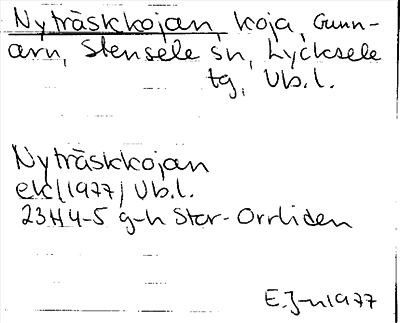 Nyträskkojan, koja, Gunn-
arn, Stensele sn, Lycksele
tg, Vb.l.
Nyträskkojan
ek (1977) Vb.l.
23H 4-5 g-h Stor-Orrliden
E.J-n 1977